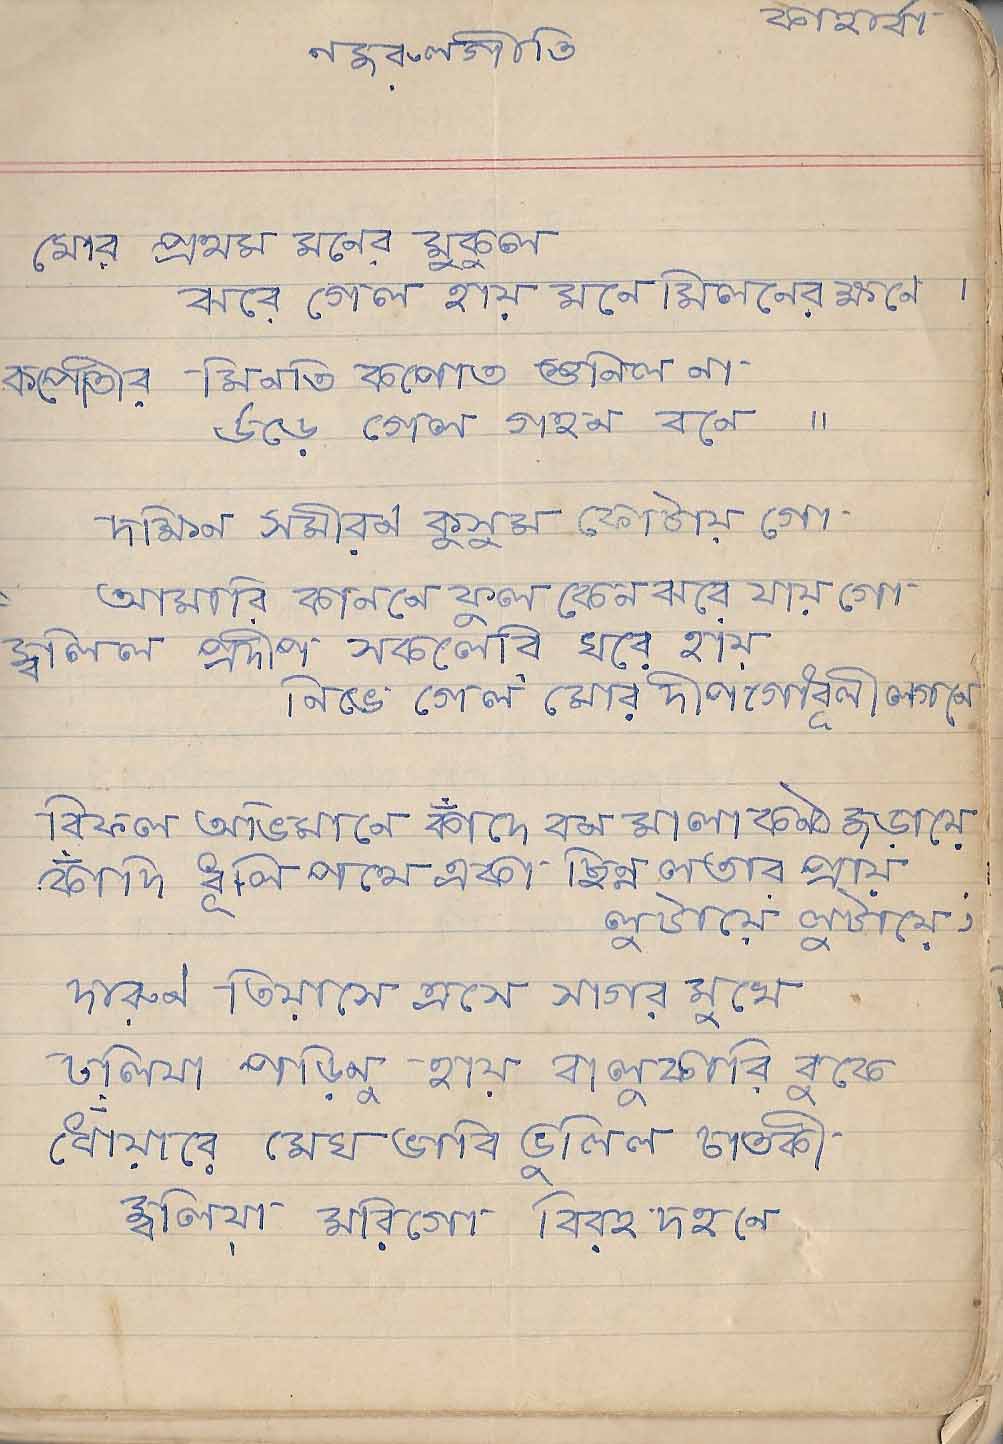 কাহার্বা
নজরুলগীতি
মোর প্রথম মনের মুকুল
ঝরে গেল হায় মনে মিলনের ক্ষনে ।
কপোতীর মিনতি কপোত শুনিল না
উড়ে গেল গহন বনে ॥
দক্ষিন সমীরন কুসুম ফোটায় গো
আমারি কাননে ফুল কেন ঝরে যায় গো
জ্বলিল প্রদীপ সকলেরি ঘরে হায়
নিভে গেল মোর দীপ গোধূলী লগনে
বিফল অভিমানে কাঁদে বন মালা কন্ঠ জড়ায়ে
কাঁদি ধূলি পথে একা ছিন্ন লতার প্রায়
লুটায়ে লুটায়ে,
দারুন তিয়াসে এসে সাগর মুখে
ঢলিয়া পড়িনু হায় বালুকারি বুকে
ধোঁয়ারে মেঘ ভাবি ভুলিল চাতকী
জ্বলিয়া মরিগো বিরহ দহনে